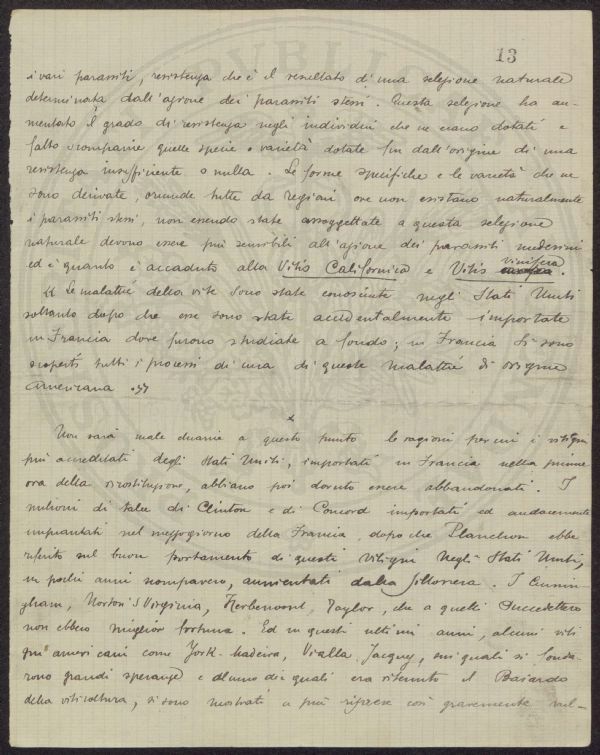 13
i vari parassiti, resistenza che è il resultato d'una selezione naturale
determinata dall'azione dei parassiti stessi. Questa selezione ha au-
mentato il grado di resistenza negli individui che ne erano dotati e
fatto scomparire quelle specie o varietà dotate fin dall'origine di una
resistenza insufficiente o nulla. Le forme specifiche e le varietà che ne
sono derivate, oriunde tutte da regioni ove non esistano naturalmente
i parassiti stessi, non essendo state assoggettate a questa selezione
naturale devono essere più sensibili all'azione dei parassiti medesimi
ed è quanto è accaduto alla Vitis Californica e Vitis vinifera.
"Le malattie della vite sono state conosciute negli Stati Uniti
soltanto dopo che esse sono state accidentalmente importate
in Francia dove furono studiate a fondo; in Francia si sono
scoperti tutti i processi di cura di queste malattie di origine
americana."
x
Non sarà male dirne a questo punto le ragioni per cui i vitigni
più accreditati degli Stati Uniti, importati in Francia nella prima
ora della ricostituzione, abbiano poi dovuto essere abbandonati. I
milioni di talee di Clinton e di Concord importati ed audacemente
impiantati nel mezzogiorno della Francia, dopo che Planchon ebbe
riferito sul buon portamento di questi vitigni negli Stati Uniti,
in pochi anni scomparvero, annientati dalla fillossera. I Cunnin
gham, Norton's Virginia, Herbemont, Taylor, che a quelli succedettero
non ebbero miglior fortuna. Ed in questi ultimi anni, alcuni viti
gni americani come York-Madeira, Vialla, Jacquez, sui quali si fonda-
rono grandi speranze e alcuno dei quali era ritenuto il Baiardo
della viticoltura, si sono mostrati a più riprese così gravemente vul-